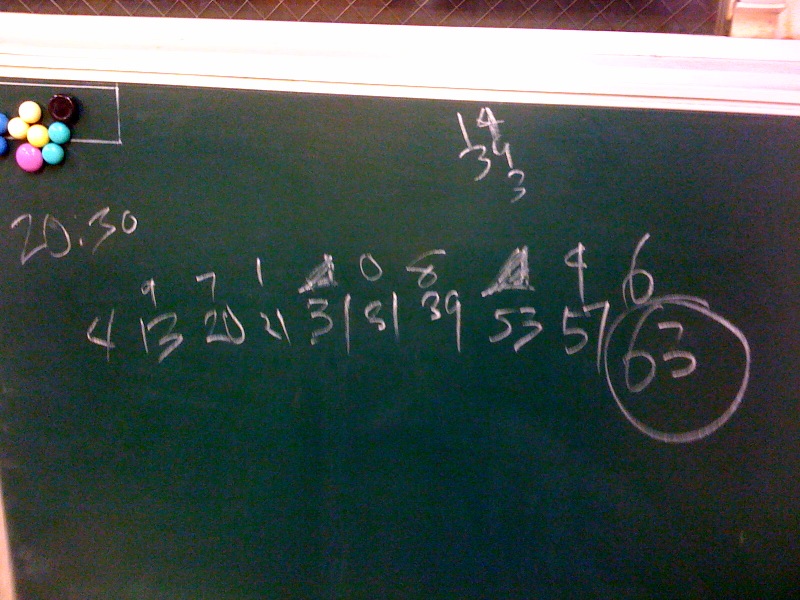 14
34
3
20:30
9 7 1 0 8 4 6
4 13 20 21 31 31 39 53 57 63